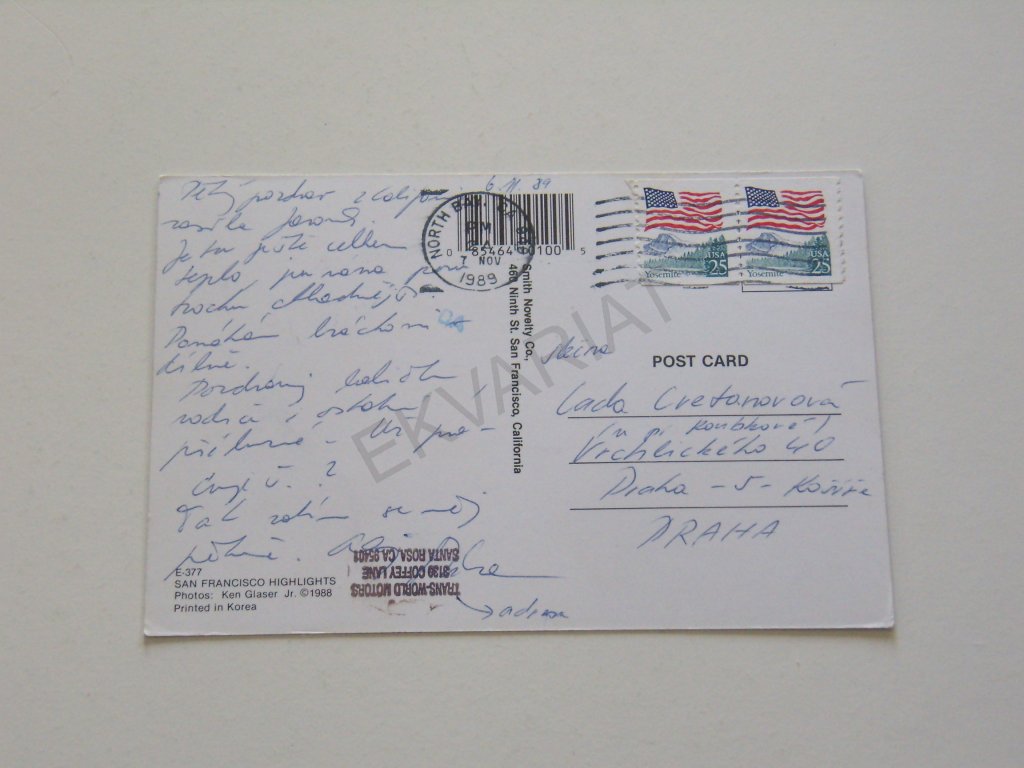 6. 11. 89
pozdrav z
Je tu ještě celkem
teplo jen rána jsou
trochu chladnější.
Pomáhám bráchovi
dílně.
Pozdravuj babičku
rodiče i ostatní
příbuzné - 
?
Tak zatím se měj
pěkně.
adresa
E-377
SAN FRANCISCO HIGHLIGHTS
Photos: Ken Glaser Jr. ©1988
Printed in Korea
TRANS-WORLD MOTORS
3130 COFFEY LANE
SANTA ROSA, CA 95401
NORTH BAY, CA
PM
7 NOV
1989
0 85464 00100 5
Smith Novelty Co.,
460 Ninth St. San Francisco, California
Yosemite USA 25
Yosemite USA 25
POST CARD
Lada Cvetanovová
Vrchlického 40
Praha - 5 - Košíře
PRAHA
EKVARIAT